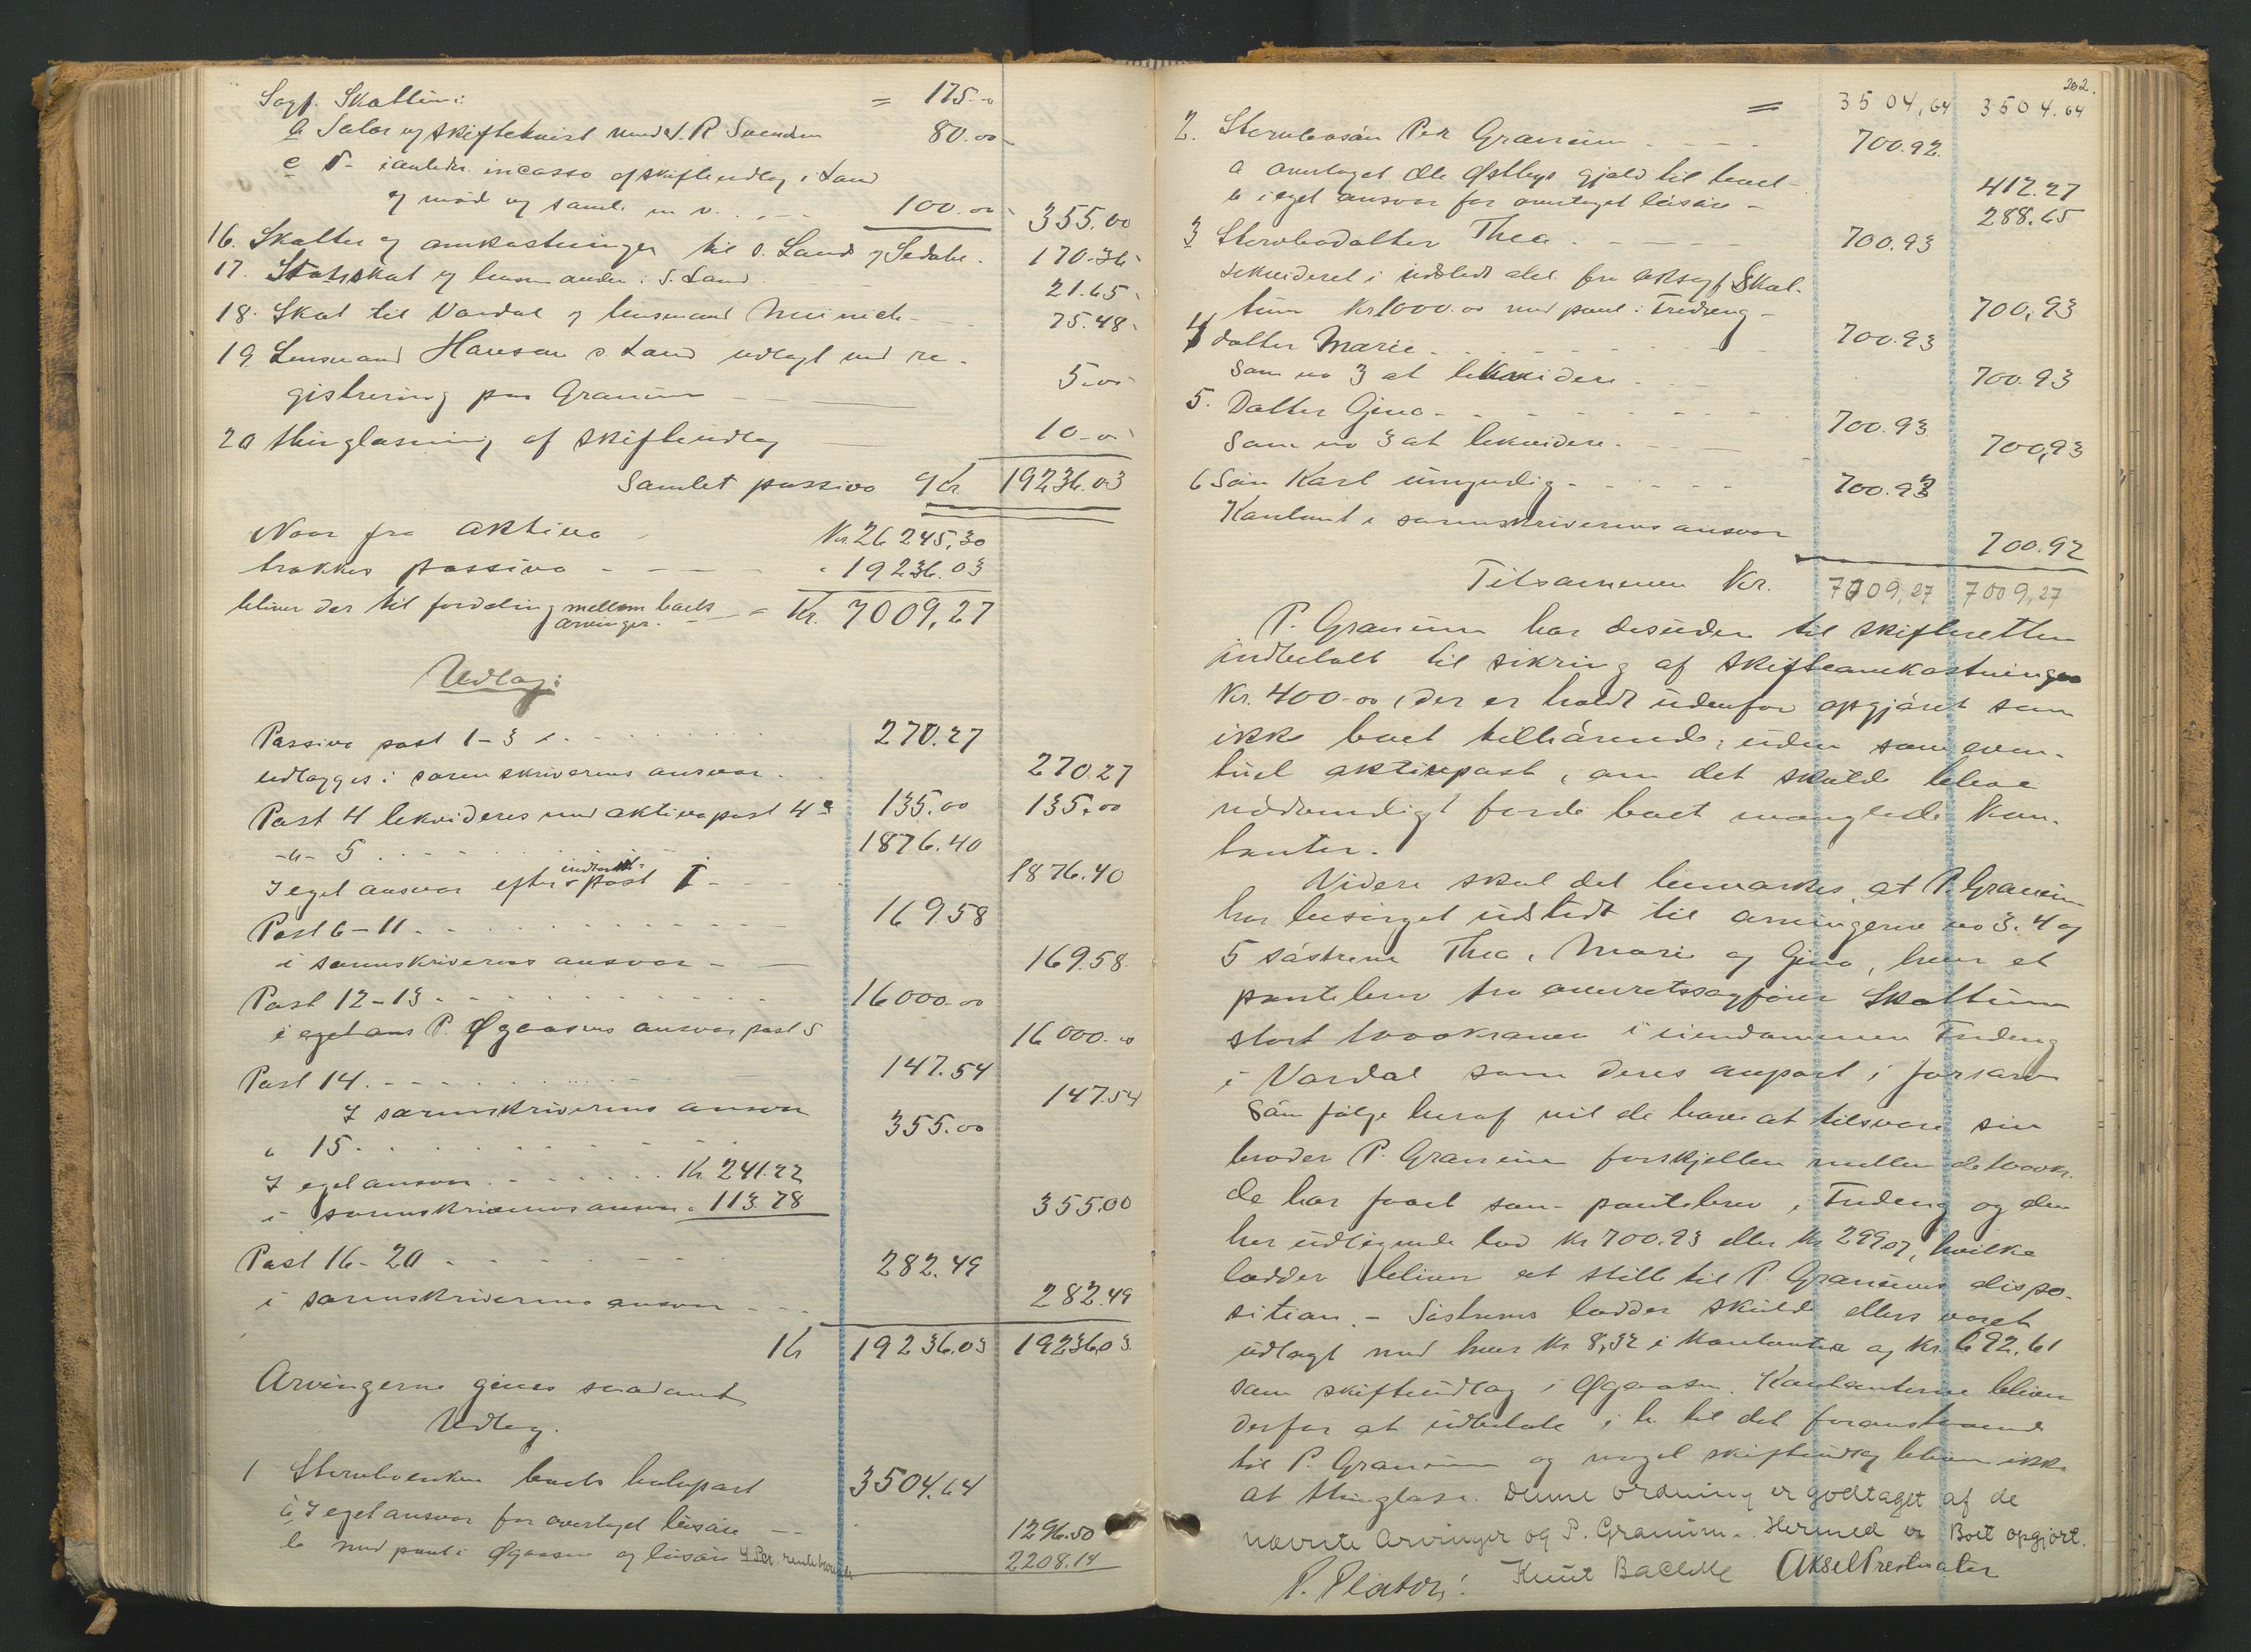 Sagf. Skattum: = 175.-
b Salær og skifteknist med S. R Svendsen 80.00
c d- i anledn. incasso af skifteudlæg i Land
og mød og saml. m v. 100.00 355.00
16. Skatter og omkostninger til S. Land og Sedahl. 170.36
17. Statsskat og lensmanden i S. Land 21.65
18. Skat til Vardal og lensmand Münich 75.48
19 Lensmand Hansen S Land udlagt ved re-
gistrering paa Granum 5.00
20 thinglæsning af skifteudlæg 10.-
Samlet passiva Kr. 19236.03
Naar fra aktiva Kr. 26245,30
trækkes passiva - " 19236.03
bliver der til fordeling mellem boets
arvinger. = Kr. 7009,27
Udlæg:
Passiva post 1-3 270.27
udlægges i sorenskriverens ansvar. 270.27
Post 4 lekvideres med aktivapost 4 135.00 135.00
-"- 5 1876.40
I eget ansvar efter indtægts post I 1876.40
Post 6-11. 169.58
i sorenskriverens ansvar 169.58
Post 12-13. 16000.00
i eget ans P. Øgaasens ansvar post 5 16000.00
Post 14. 147.54
I sorenskriverens ansvar 147.54
" 15. 355.00
I eget ansvar Kr. 241.22
i sorenskriverens ansvar " 113.78 355.00
Post 16-20 282.49
i sorenskriverens ansvar 282.49
Kr 19236.03 19236.03
Arvingerne gives saadant
Udlæg.
1 Stervboenken boets halvpart 3504.64
a, I eget ansvar for overtaget løsøre 1296.50
b med pant i Øgaasen og løsøre 2208.14
202.
= 3504,64 3504.64
2. Stervbosøn Per Granum 700.92
a overtaget Ole Østbys gjæld til boet 412.27
b i eget ansvar for overtaget løsøre - 288.65
3 Stervbodatter Thea 700.93
Lekvideret i udstedt obl. fra O.R.sagf Skat-
tum Kr 1000.00 med pant i Fredeng - 700,93
4 datter Marie 700.93
Som no 3 at lekvidere 700.93
5. Datter Gina 700.93
Som no 3 at lekvidere 700,93
6 Søn Karl umyndig 700.93
Kontant i sorenskriverens ansvar 700.92
Tilsammen Kr. 7009,27 7009,27
P. Granum har desuden til skifteretten
indbetalt til sikring af skifteomkostninger
Kr. 400.00, der er holdt udenfor opgjøret som
ikke boet tilhørende, uden som even-
tuel aktivapost, om det skulde bleve
nødvendigt fordi boet manglede kon-
tanter.
Videre skal det bemærkes, at P. Granum
har besørget udstedt til arvingerne no 3. 4 og
5 søstrene Thea, Marie og Gina, hver et
pantebrev fra overretssagfører Skattum
stort 1000 kroner i eiendommen Fredeng
i Vardal som deres anpart i farsarv
Som følge heraf vil de have at tilsvare sin
broder P. Granum forskjellen mellem de 1000 kr.
de har faaet som pantebrev i Fredeng og den
her udlignede lod Kr 700.93 eller Kr 299.07, hvilke
lodder bliver at stille til P. Granums dispo-
sition. - Søstrenes lodder skulde ellers været
udlagt med hver Kr 8,32 i kontanter og Kr. 692.61
som skifteudlæg i Øgaasen. Kontanterne bliver
derfor at udbetale i h. til det foranstaaende
til P. Granum og noget skifteudlæg bliver ikke
at thinglæse. Denne ordning er godtaget af de
nævnte Arvinger og P. Granum. Hermed er Boet opgjort.
P. Platou. Knut Bache Aksel Prestsæter